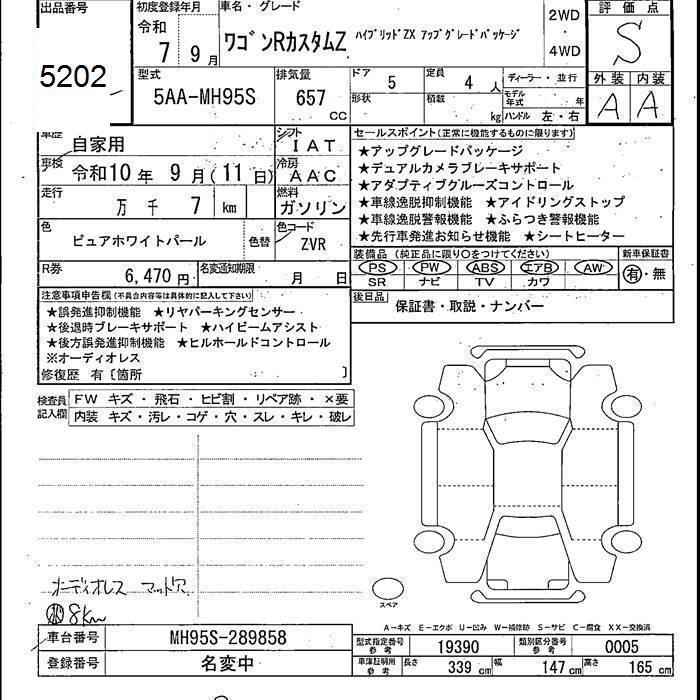 出品番号
5202
初度登録年月
令和
7 9月
車名・グレード
ワゴンRカスタムZ ハイブリッドZX アップグレードパッケージ
2WD
・
4WD
評価点
S
外装 内装
A A
型式
5AA-MH95S
排気量
657
CC
ドア
5
形状
定員
4 人
積載
kg
ディーラー・並行
モデル年式 年
ハンドル 左・右
車歴
自家用
シフト
IAT
車検
令和10年 9月(11日)
冷房
AAC
走行
万 千 7 km
燃料
ガソリン
色
ピュアホワイトパール
色替
色コード
ZVR
R券
6,470円
名変通知期限
月 日
セールスポイント(正常に機能するものに限ります)
★アップグレードパッケージ
★デュアルカメラブレーキサポート
★アダプティブクルーズコントロール
★車線逸脱抑制機能 ★アイドリングストップ
★車線逸脱警報機能 ★ふらつき警報機能
★先行車発進お知らせ機能 ★シートヒーター
装備品(純正品に限り○をつけてください)
PS PW ABS エアB AW
SR ナビ TV カワ
新車保証書
有・無
後日品
保証書・取説・ナンバー
注意事項申告欄(不具合内容等は具体的に記入して下さい)
★誤発進抑制機能 ★リヤパーキングセンサー
★後退時ブレーキサポート ★ハイビームアシスト
★後方誤発進抑制機能 ★ヒルホールドコントロール
※オーディオレス
修復歴 有〔箇所 〕
検査員記入欄
FW キズ・飛石・ヒビ割・リペア跡・×要
内装 キズ・汚レ・コゲ・穴・スレ・キレ・破レ
オーディオレス マット穴
8km
スペア
A-キズ E-エクボ U-凹み W-補修跡 S-サビ C-腐食 XX-交換済
車台番号
MH95S-289858
登録番号
名変中
型式指定番号
参考
19390
類別区分番号
参考
0005
車庫証明用
参考
長さ
339 cm
幅
147 cm
高さ
165 cm